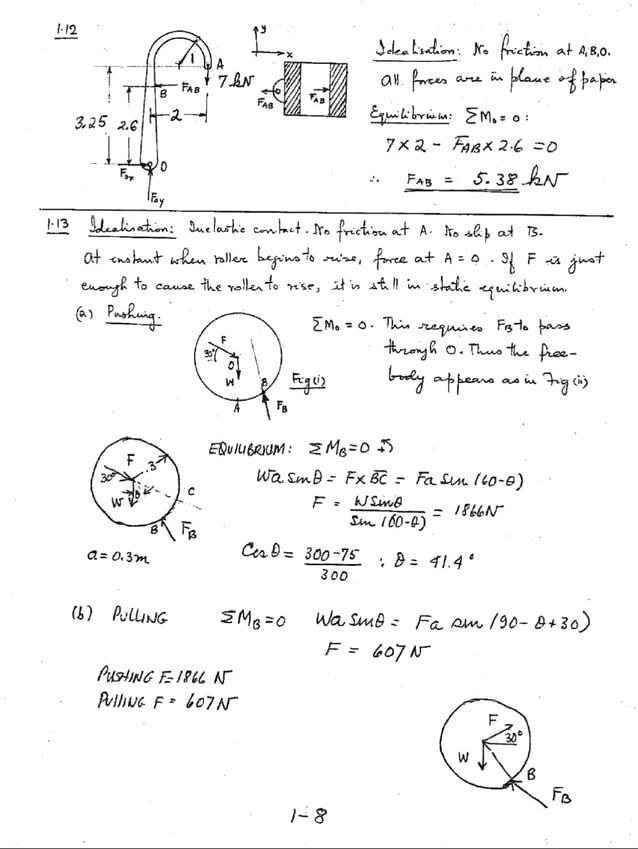 1.12
y
x
1
A
7 kN
F_AB
B
2
3.25
2.6
O
F_ox
F_oy
F_AB
O
F_AB
Idealisation: No friction at A, B, O.
all forces are in plane of paper
Equilibrium: ΣM_o = 0:
7 × 2 − F_AB × 2.6 = 0
∴ F_AB = 5.38 kN
1.13 Idealisation: Inelastic contact. No friction at A. No slip at B.
At instant when roller begins to rise, force at A = 0. If F is just
enough to cause the roller to rise, it is still in static equilibrium.
(a) Pushing.
F
30°
O
W
B
A
F_B
Fig (i)
ΣM_o = 0. This requires F_B to pass
through O. Thus the free-
body appears as in Fig (ii)
F
.3
30°
W
θ
C
B
F_B
a = 0.3m
EQUILIBRIUM: ΣM_B = 0
Wa sinθ = F × BC = Fa sin (60-θ)
F = W sinθ / sin (60-θ) = 1866N
Cos θ = 300-75 / 300 ∴ θ = 41.4°
(b) PULLING ΣM_B = 0 Wa sinθ = Fa sin (90- θ+30)
F = 607N
PUSHING F = 1866 N
PULLING F = 607N
F
30°
W
B
F_B
1-8